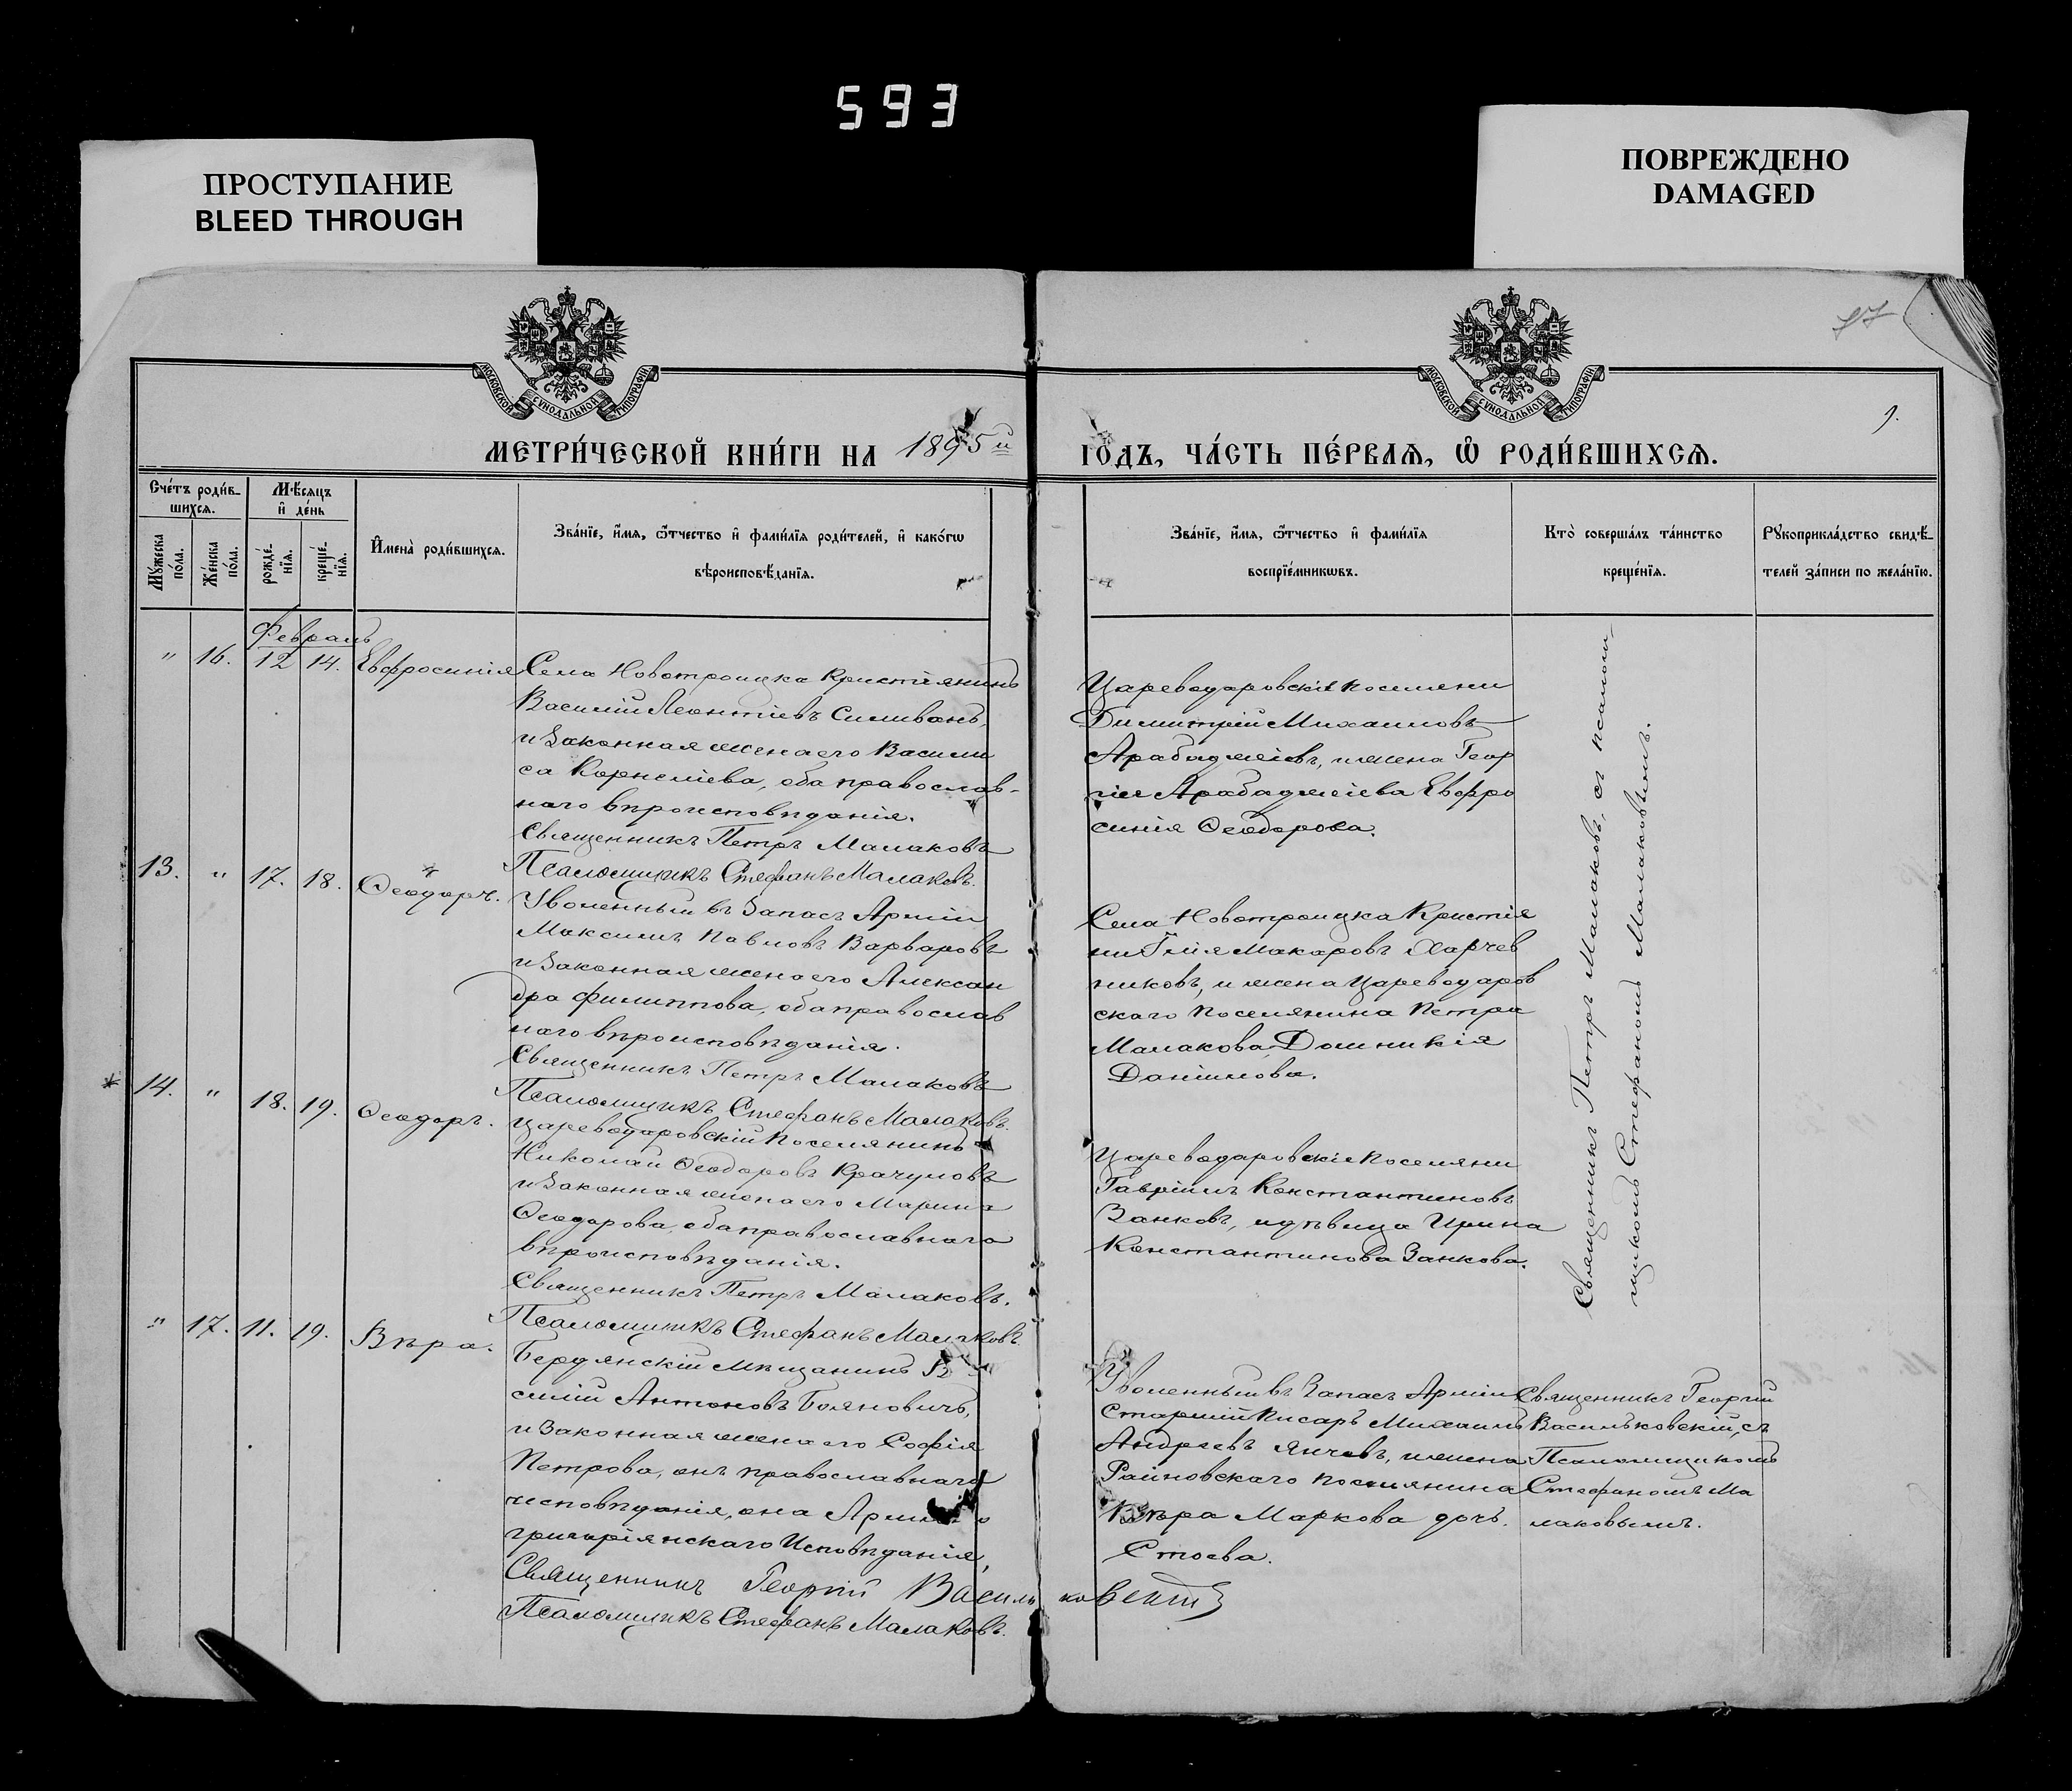 593
ПРОСТУПАНИЕ
BLEED THROUGH
ПОВРЕЖДЕНО
DAMAGED
МОСКОВСКОЙ СѴНОДАЛЬНОЙ ТИПОГРАФІИ
МОСКОВСКОЙ СѴНОДАЛЬНОЙ ТИПОГРАФІИ
77
9.
МЕТРИ́ЧЕСКОЙ КНИ́ГИ НА 1895й ГО́ДЪ, ЧА́СТЬ ПЕ́РВАѦ, Ѿ РОДИ́ВШИХСѦ.
Сче́тъ роди́в-
шихсѧ.
Мꙋ́жеска
по́ла.
Же́нска
по́ла.
Мѣ́сѧцъ
и҆ де́нь
рожде́-
нїѧ.
креще́-
нїѧ.
И҆мена̀ роди́вшихсѧ.
Зва́нїе, и҆́мѧ, ѻ҆́тчество и҆ фами́лїѧ роди́телей, и҆ како́гѡ
вѣроисповѣ́данїѧ.
Зва́нїе, и҆́мѧ, ѻ҆́тчество и҆ фами́лїѧ
воспрїе́мникѡвъ.
Кто̀ соверша́лъ та́инство
креще́нїѧ.
Рꙋкоприкла́дство свидѣ́-
телей за́писи по жела́нїю.
Февраль
" 16. 12 14. Евфросинія
Села Новотроицка Кристіянинъ
Василій Леонтіевъ Силивонъ,
и Законная жена его Васили
са Корнеліева, оба православ-
наго вѣроисповѣданія.
Священникъ Петръ Малаковъ
Псаломщикъ Стефанъ Малаковъ.
Цареводаровскіе поселяни
Димитрій Михаиловъ
Арабаджіевъ, и жена Геор
гія Арабаджіева Евфро
синія Ѳеодорова.
Священникъ Петръ Малаковъ, съ псалом-
щикомъ Стефаномъ Малаковымъ.
13. " 17. 18. Ѳеодоръ.
Уволенный въ Запасъ Арміи
Максимъ Павловъ Варваровъ
и Законная жена его Алексан
дра Филиппова, оба православ
наго вѣроисповѣданія.
Священникъ Петръ Малаковъ
Псаломщикъ Стефанъ Малаковъ.
Села Новотроицка Кристія
ни Илія Макаровъ Харчев
никовъ, и жена Цареводаров
скаго поселянина Петра
Малакова, Домникія
Даніилова.
* 14. " 18. 19. Ѳеодоръ.
Цареводаровскій поселянинъ
Николай Ѳеодоровъ Крачуновъ
и Законная жена его Марина
Ѳеодорова, оба православнаго
вѣроисповѣданія.
Священникъ Петръ Малаковъ.
Псаломщикъ Стефанъ Малаковъ
Цареводаровскіе поселяни
Гавріилъ Константиновъ
Занковъ, и дѣвица Ирина
Константинова Занкова.
" 17. 11. 19. Вѣра.
Бердянскій Мѣщанинъ
силій Антоновъ Бояновичъ,
и Законная жена его Софія
Петрова, онъ православнаго
исповѣданія, она
григоріянскаго Исповѣданія,
Священникъ Георгій Васильковскій
Псаломщикъ Стефанъ Малаковъ.
Уволенный въ Запасъ Арміи
Старшій писарь Михаилъ
Андреевъ Янчевъ, и жена
Райновскаго поселянина
Вѣра Маркова дочь.
Стоева.
Священникъ Георгій
Васильковскій, съ
Псаломщикомъ
Стефаномъ Ма
лаковымъ.